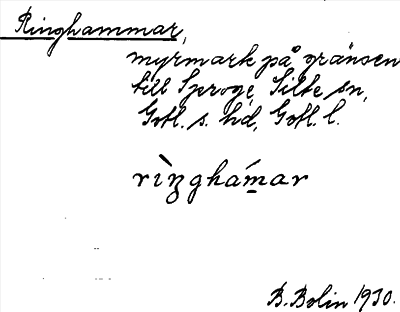 Ringhammar,
myrmark på gränsen
till Sproge, Silte sn,
Gotl. s. hd, Gotl. l.
rìŋghámar
B. Bolin 1930.